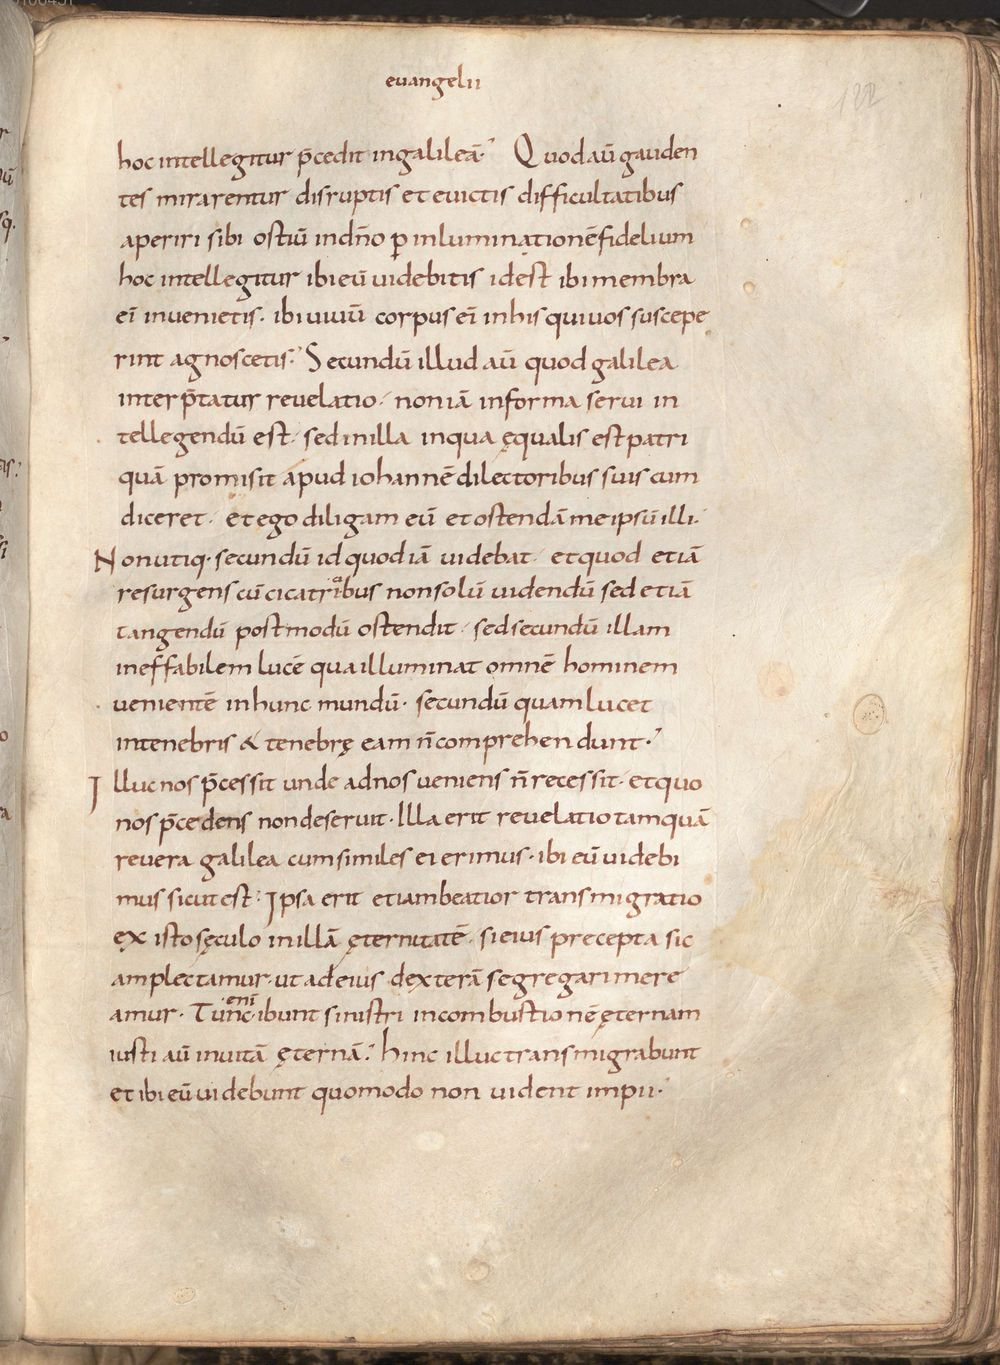 euangelii
122
hoc intellegitur p̄cedit in galileā. Quod aū gauden
tes mirarentur disruptis et euictis difficultatibus
aperiri sibi ostiū in dn̄o ꝑ inluminationē fidelium
hoc intellegitur ibi eū uidebitis id est ibi membra
ei̅ inuenietis. ibi uiuū corpus ei̅ in his qui uos suscepe
rint agnoscetis. Secundū illud aū quod galilea
interp̄tatur reuelatio. non iā in forma serui in
tellegendū est. sed in illa in qua ęqualis est patri
quā promisit apud iohannē dilectoribus suis cum
diceret. et ego diligam eū et ostendā me ipsū illi.
Non utiq. secundū id quod iā uidebat. et quod etiā
resurgens cū cicatricibus non solū uidendū sed etiā
tangendū postmodū ostendit. sed secundū illam
ineffabilem lucē qua illuminat omnē hominem
uenientē in hunc mundū. secundū quam lucet
in tenebris & tenebrę eam n̄ comprehendunt.
Illuc nos p̄cessit unde ad nos ueniens n̄ recessit. et quo
nos p̄cedens non deseruit. Illa erit reuelatio tamquā
reuera galilea cum similes ei erimus. ibi eū uidebi
mus sicut est. Ipsa erit etiam beatior transmigratio
ex isto sęculo in illā ęternitatē. si eius precepta sic
amplectamur. ut ad eius dexterā segregari mere
amur. Tunc enī ibunt sinistri in combustionē ęternam
iusti aū in uitā ęternā. hinc illuc transmigrabunt
et ibi eū uidebunt quomodo non uident impii.